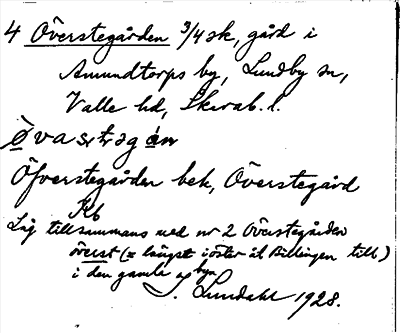 4 Överstegården 3/4 sk, gård i
Amundtorps by, Lundby sn,
Valle hd, Skarab. l.
Övastəgán
Öfverstegården bek, Överstegård
Kb
Låg tillsammans med nr 2 Överstegården
överst (= längst i öster åt Billingen till)
i den gamla byn
J. Lundahl 1928.